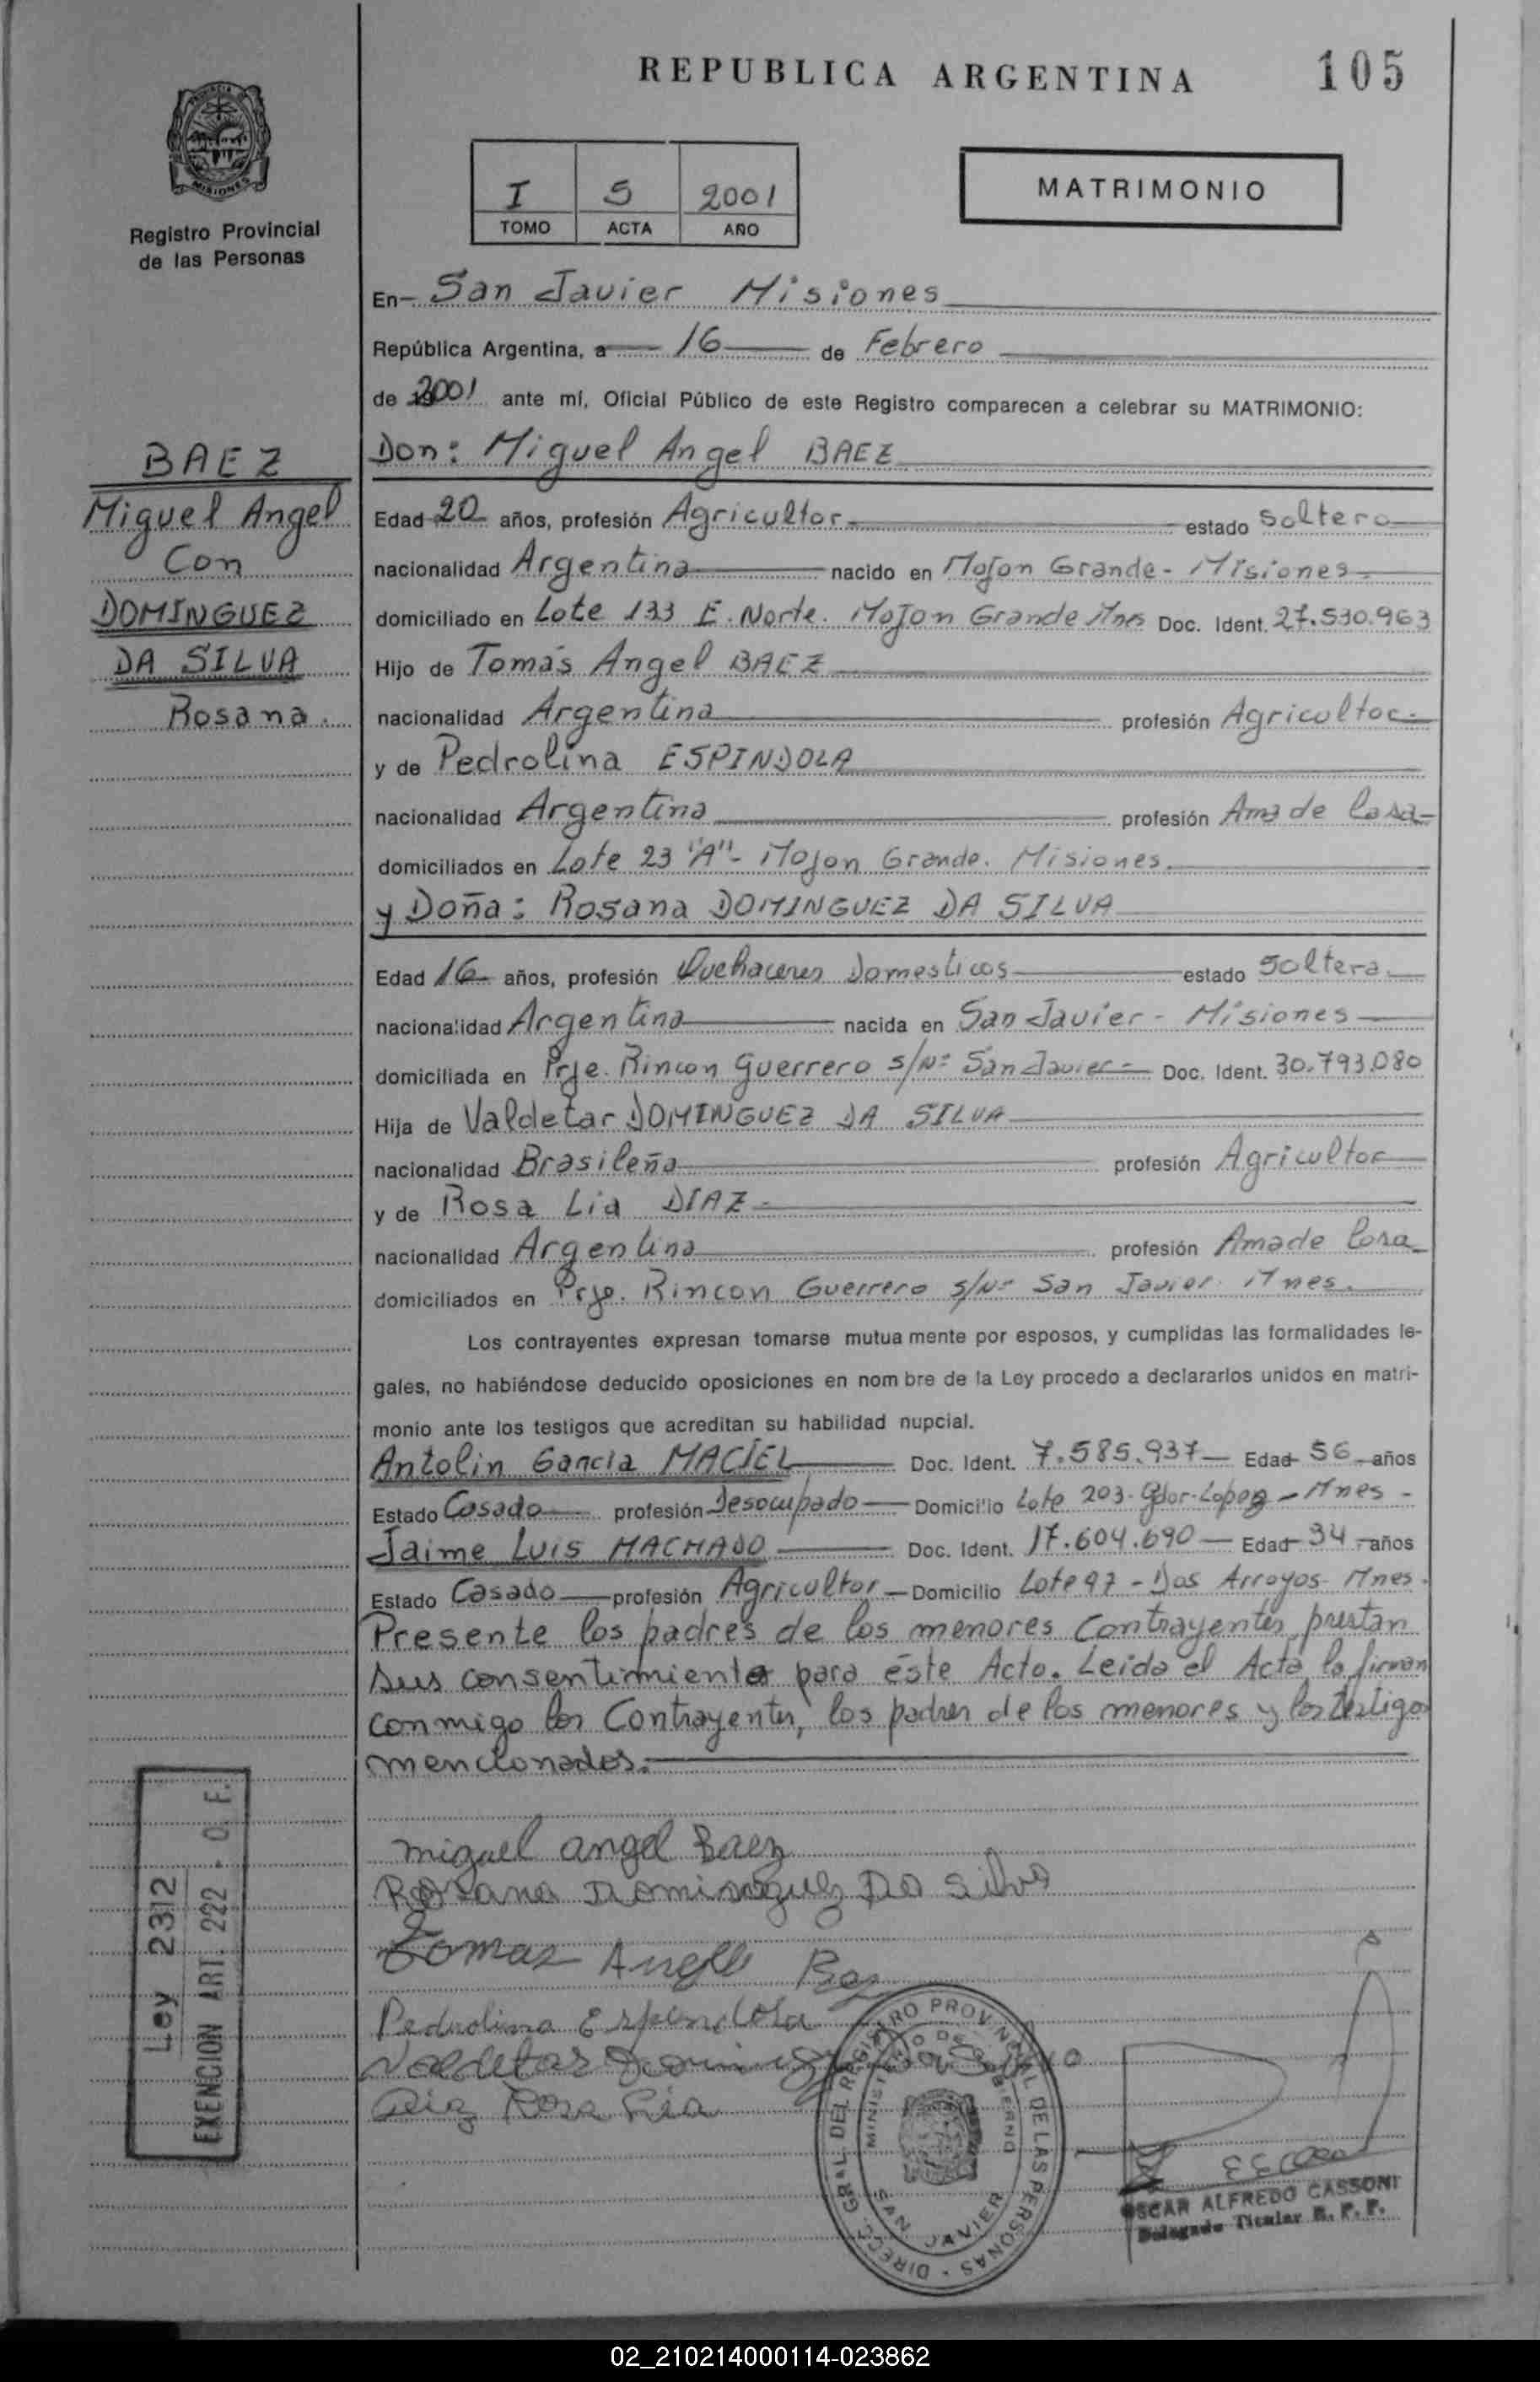 REPUBLICA ARGENTINA
105
MISIONES
Registro Provincial
de las Personas
I 5 2001
TOMO ACTA AÑO
MATRIMONIO
En San Javier Misiones
República Argentina, a 16 de Febrero
de 2001 ante mí, Oficial Público de este Registro comparecen a celebrar su MATRIMONIO:
BAEZ
Miguel Angel
Con
DOMINGUEZ
DA SILVA
Rosana.
Don: Miguel Angel BAEZ
Edad 20 años, profesión Agricultor estado Soltero
nacionalidad Argentina nacido en Mojon Grande - Misiones
domiciliado en Lote 133 E. Norte. Mojon Grande Mnes Doc. Ident. 27.530.963
Hijo de Tomás Angel BAEZ
nacionalidad Argentina profesión Agricultor
y de Pedrolina ESPINDOLA
nacionalidad Argentina profesión Ama de Casa
domiciliados en Lote 23 "A" - Mojon Grande. Misiones.
y Doña: Rosana DOMINGUEZ DA SILVA
Edad 16 años, profesión Quehaceres Domesticos estado Soltera
nacionalidad Argentina nacida en San Javier - Misiones
domiciliada en Prje. Rincon Guerrero s/Nº San Javier - Doc. Ident. 30.793.080
Hija de Valdetar DOMINGUEZ DA SILVA
nacionalidad Brasileña profesión Agricultor
y de Rosa Lia DIAZ
nacionalidad Argentina profesión Ama de Casa
domiciliados en Prje. Rincon Guerrero s/Nº San Javier Mnes.
Los contrayentes expresan tomarse mutua mente por esposos, y cumplidas las formalidades le-
gales, no habiéndose deducido oposiciones en nom bre de la Ley procedo a declararlos unidos en matri-
monio ante los testigos que acreditan su habilidad nupcial.
Antolin Garcia MACIEL Doc. Ident. 7.585.937 Edad 56 años
Estado Casado profesión Desocupado Domicilio Lote 203 - Gdor - Lopez - Mnes -
Jaime Luis MACHADO Doc. Ident. 17.604.690 Edad 34 años
Estado Casado profesión Agricultor Domicilio Lote 97 - Dos Arroyos - Mnes.
Presente los padres de los menores Contrayentes, prestan
sus consentimiento para éste Acto. Leida el Acta, la firman
conmigo los Contrayentes, los padres de los menores y los testigos
mencionados.
miguel angel Baez
Rosana Dominguez Da Silva
Tomas Baez
Pedrolina Espindola
Valdetar
Diaz Rosa Lia
Ley 2312
EXENCION ART. 222 . C. F.
DIRECC. GRAL. DEL REGISTRO PROVINCIAL DE LAS PERSONAS
MINISTERIO DE GOBIERNO
SAN JAVIER
OSCAR ALFREDO CASSONI
Delegado Titular R. P. P.
02_210214000114-023862